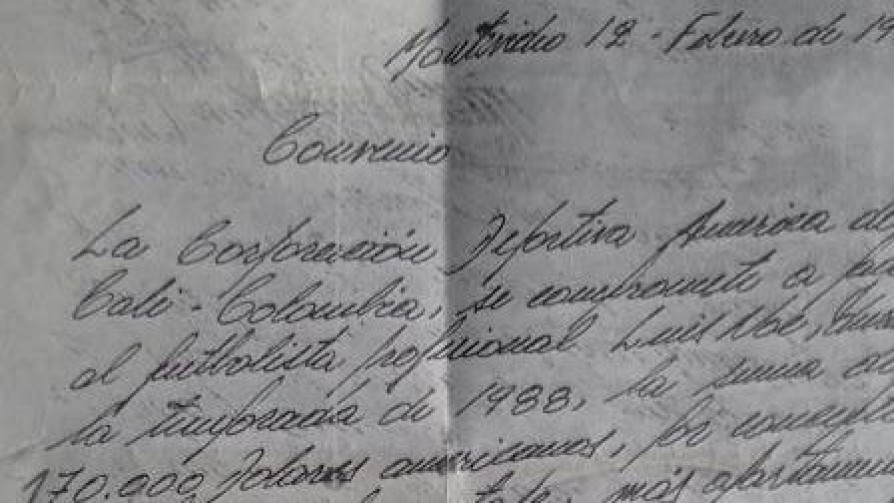 Montevideo 12 - Febrero de 19
Convenio
La Corporación Deportiva America de
Cali - Colombia, se compromete a
al futbolista profesional Luis Noé,
la temporada de 1988, la suma de
170.000 Dolares americanos, por
más apartamen